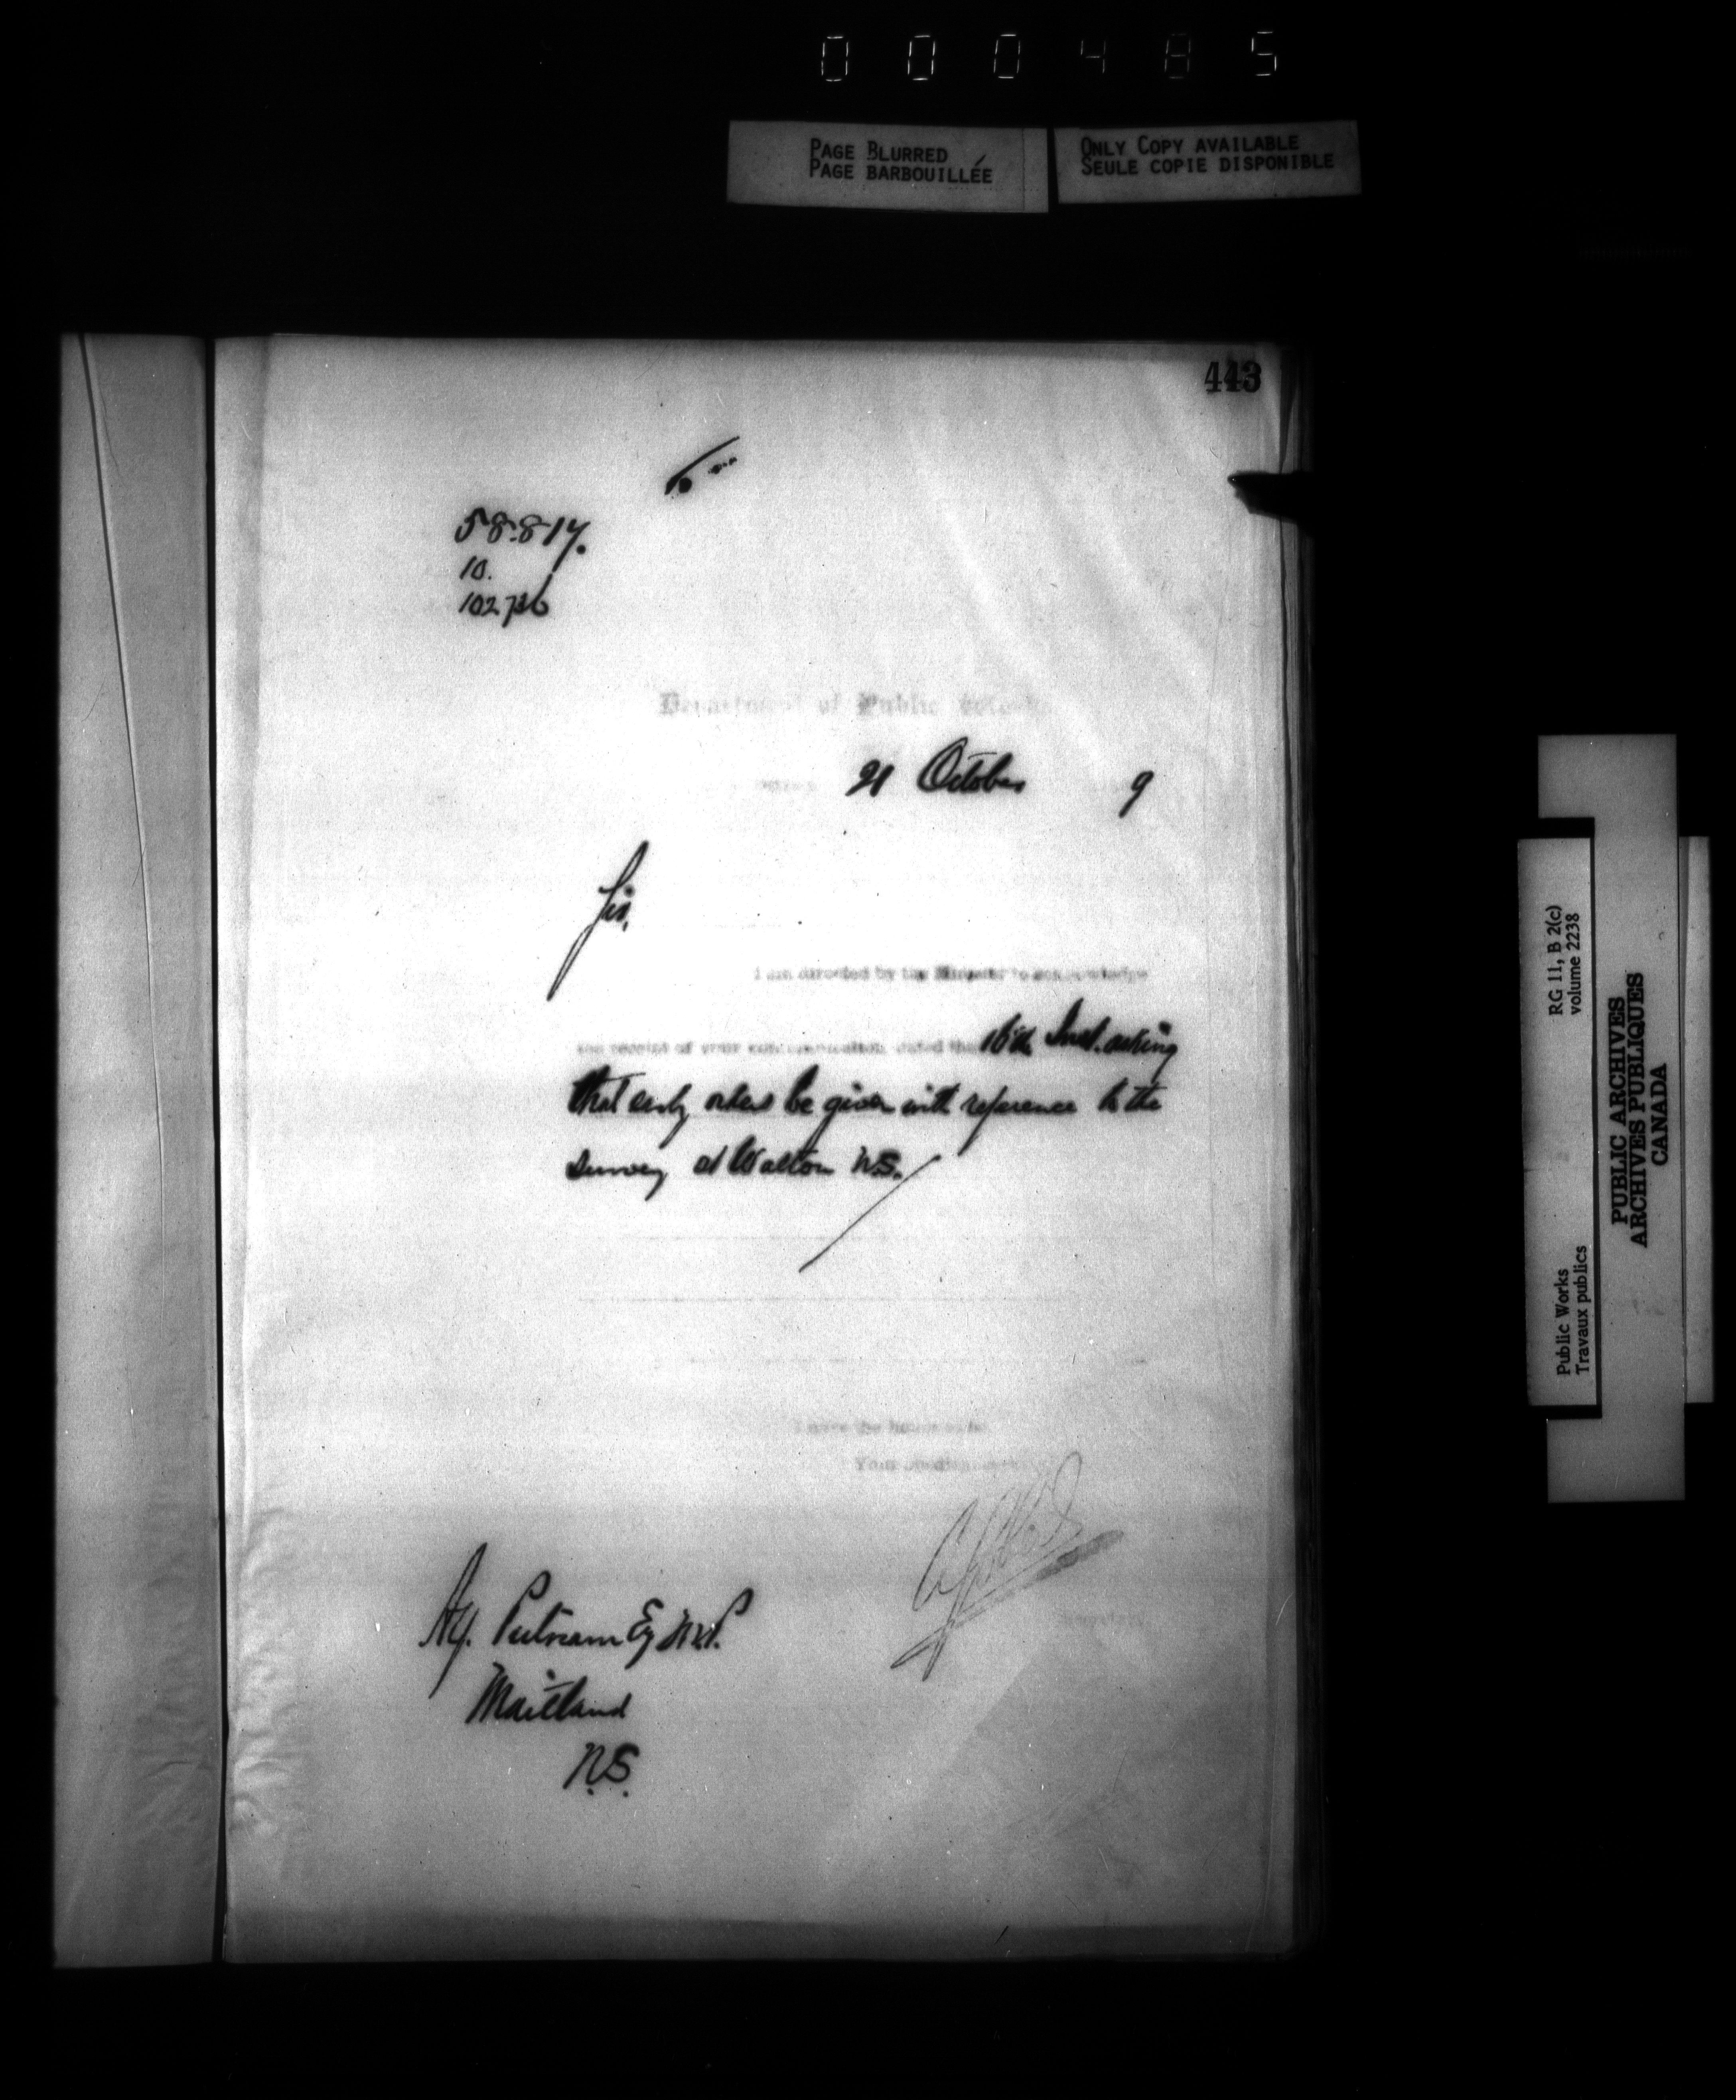 000485
PAGE BLURRED
PAGE BARBOUILLÉE
ONLY COPY AVAILABLE
SEULE COPIE DISPONIBLE
443
58.817.
10.
102736
Department of Public
21 October 9
Sir,
I am directed by the Minister to acknowledge
the receipt of your communication dated the 16th Inst. asking
that early orders be given with reference to the
survey at Walton N.S.
I have the honor to be
Your obedient
Putnam Esq M.P.
Maitland
N.S.
RG 11, B 2(c)
volume 2238
Public Works
Travaux publics
PUBLIC ARCHIVES
ARCHIVES PUBLIQUES
CANADA